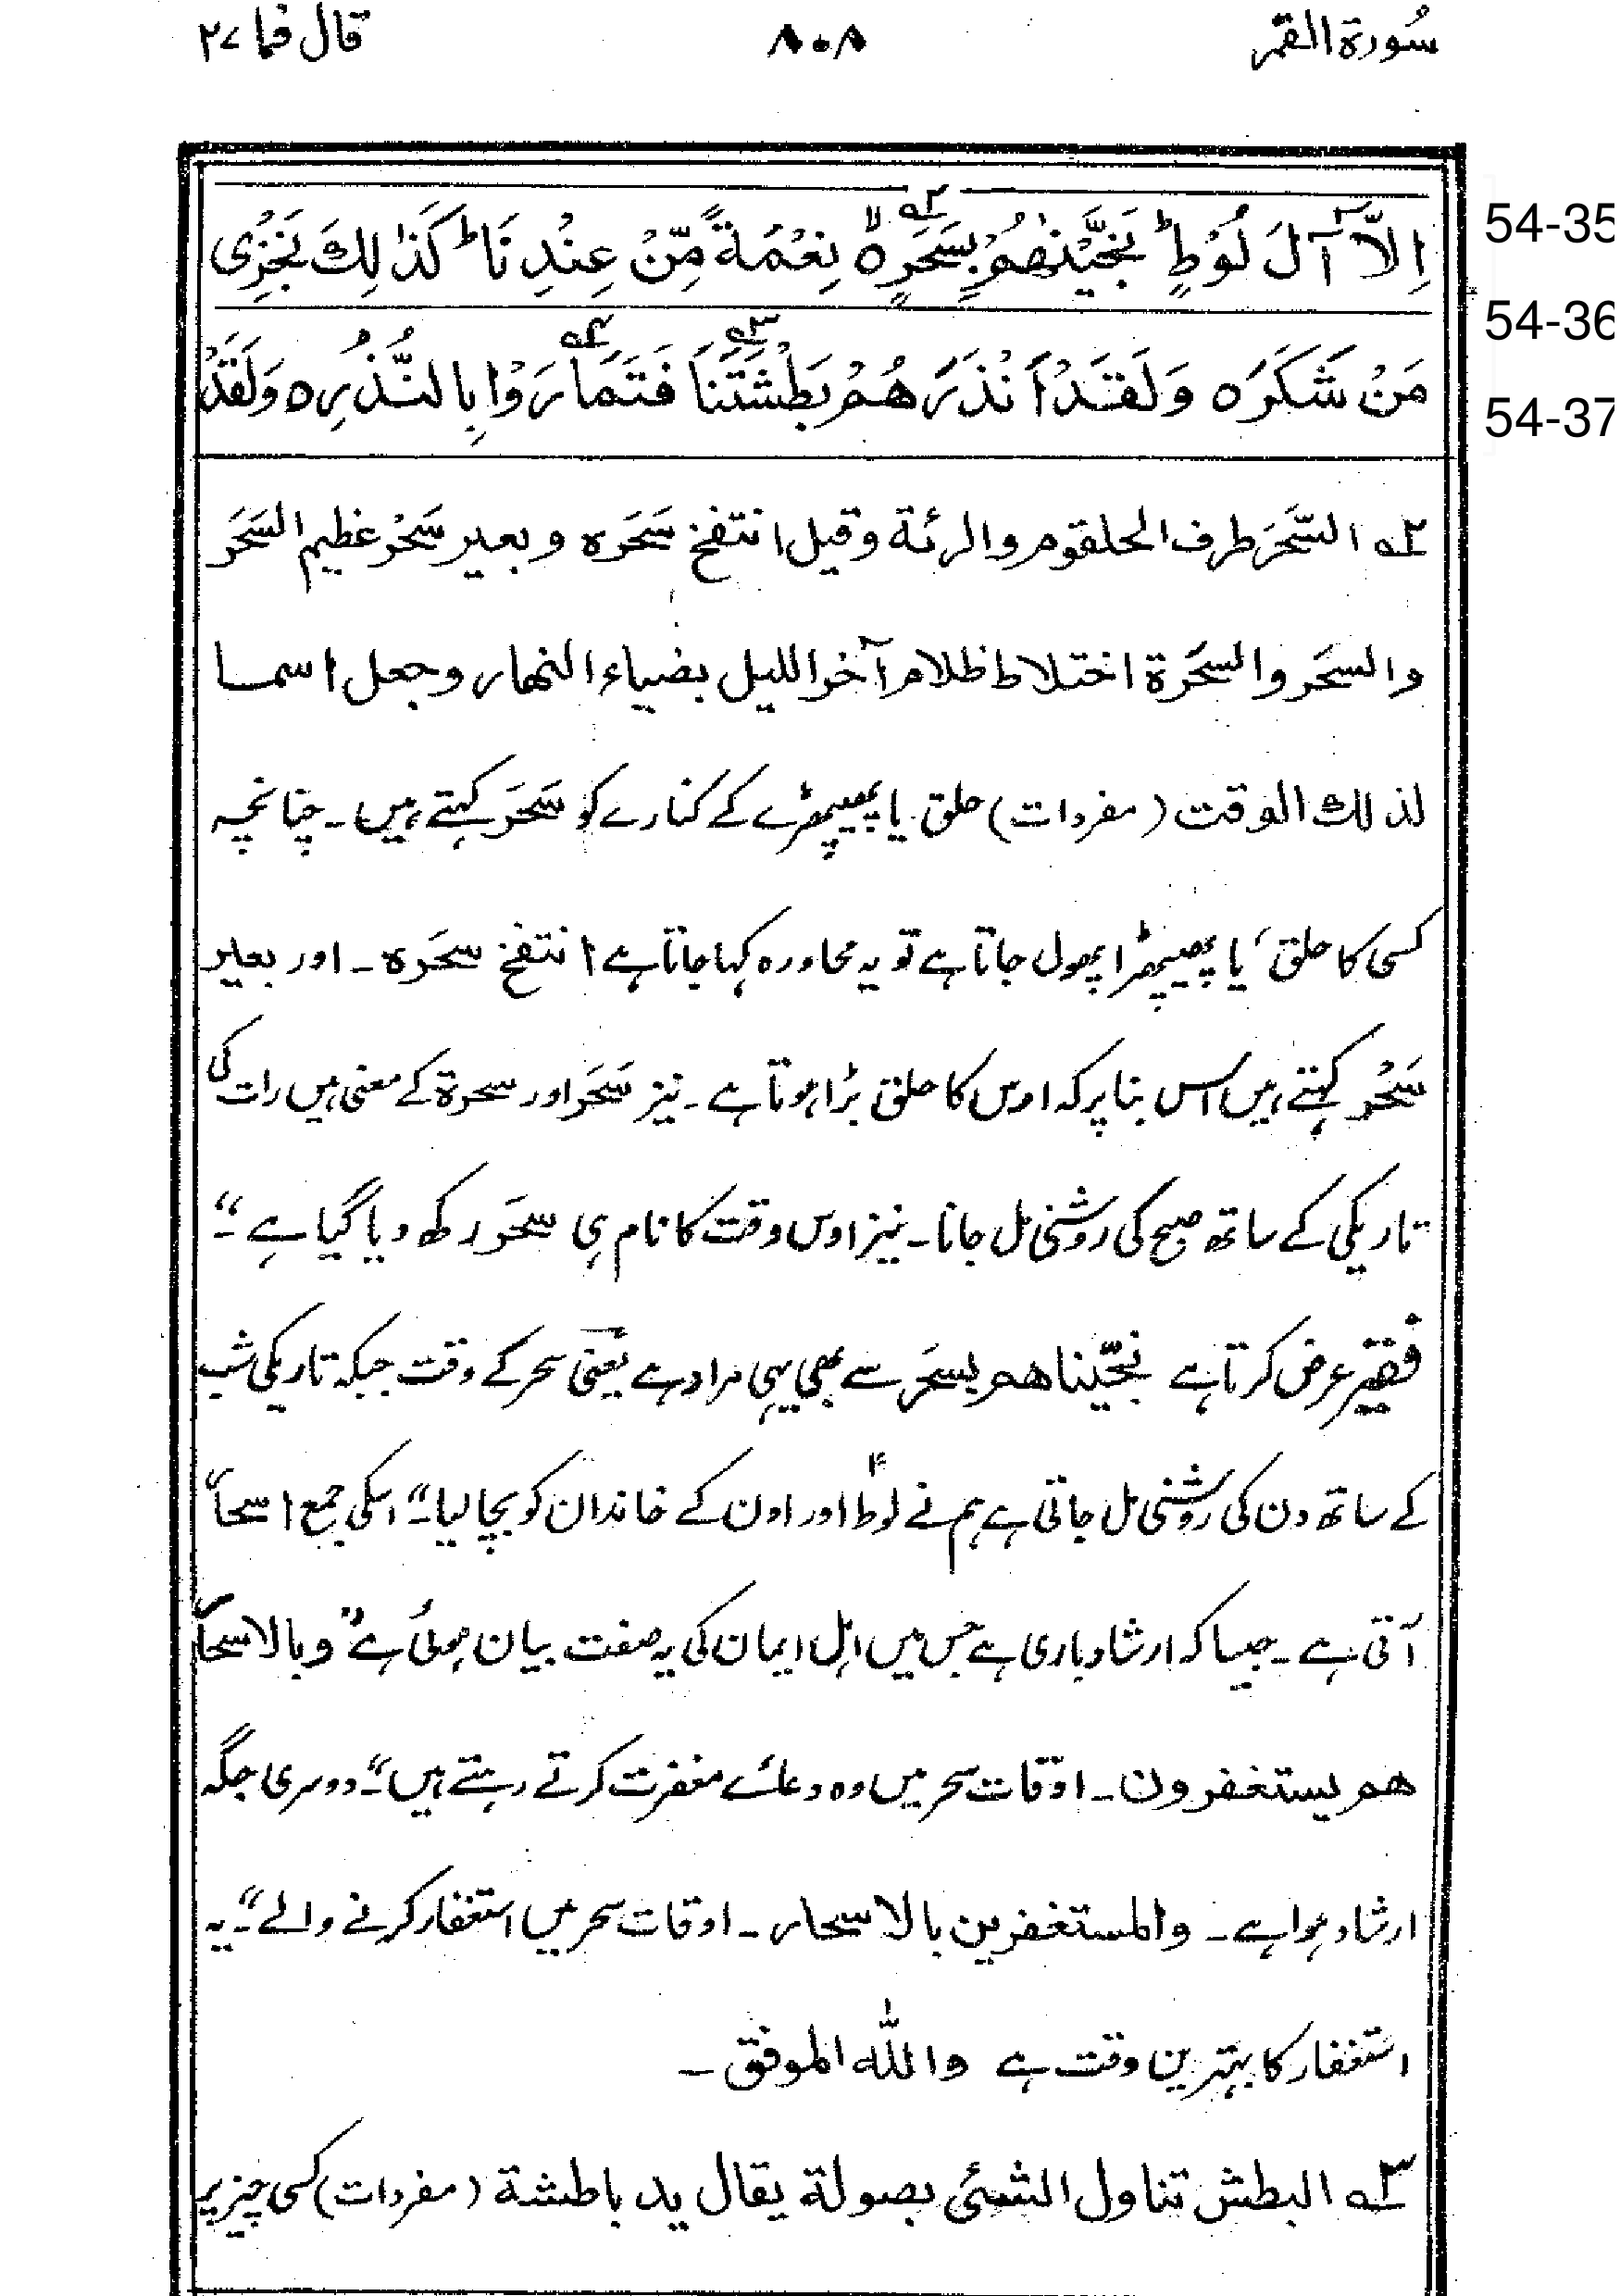 سُورة القمر ٨٠٨ قال فما ٢٧
اِلَّآ آلَ لُوْطٍ ؕ نَجَّيْنٰهُمْ بِسَحَرٍ۲؎ ۙ نِعْمَةً مِّنْ عِنْدِنَا ؕ كَذٰلِكَ نَجْزِىْ
54-35
54-36
مَنْ شَكَرَ ہ وَلَقَدْ اَنْذَرَهُمْ بَطْشَتَنَا۳؎ فَتَمَارَوْا۴؎ بِالنُّذُرِ ہ وَلَقَدْ
54-37
۲؎ السَّحَر طرف الحلقوم والرئة وقيل انتفخ سَحَره وبعير سَحْر عظيم السَحَر
والسحَر والسحَرة اختلاط ظلام آخر الليل بضياء النهار وجعل اسما
لذلك الوقت (مفردات) حلق یا پھیپھڑے کے کنارے کو سَحَر کہتے ہیں۔ چنانچہ
کسی کا حلق، یا پھیپھڑا پھول جاتا ہے تو یہ محاورہ کہا جاتا ہے انتفخ سحَره۔ اور بعیر
سَحْر کہتے ہیں اس بنا پر کہ اوس کا حلق بڑا ہوتا ہے۔ نیز سَحَر اور سحرة کے معنی ہیں رات کی
تاریکی کے ساتھ صبح کی روشنی مل جانا۔ نیز اوس وقت کا نام ہی سحَر رکھ دیا گیا ہے“۔
فقیر عرض کرتا ہے نجّیناهم بسحَر سے بھی یہی مراد ہے یعنی سحر کے وقت جبکہ تاریکی شب
کے ساتھ دن کی روشنی مل جاتی ہے ہم نے لوطؑ اور اون کے خاندان کو بچا لیا“۔ اسکی جمع اسحار
آتی ہے۔ جیسا کہ ارشاد باری ہے جس میں اہل ایمان کی یہ صفت بیان ہوئی ہے ”وبالاسحار
هم يستغفرون۔ اوقات سحر میں وہ دعائے مغفرت کرتے رہتے ہیں“۔ دوسری جگہ
ارشاد ہوا ہے۔ والمستغفرين بالاسحار۔ اوقات سحر میں استغفار کرنے والے“۔ یہ
استغفار کا بہترین وقت ہے واللہ الموفق۔
۳؎ البطش تناول الشئ بصولة يقال يد باطشة (مفردات) کسی چیز پر